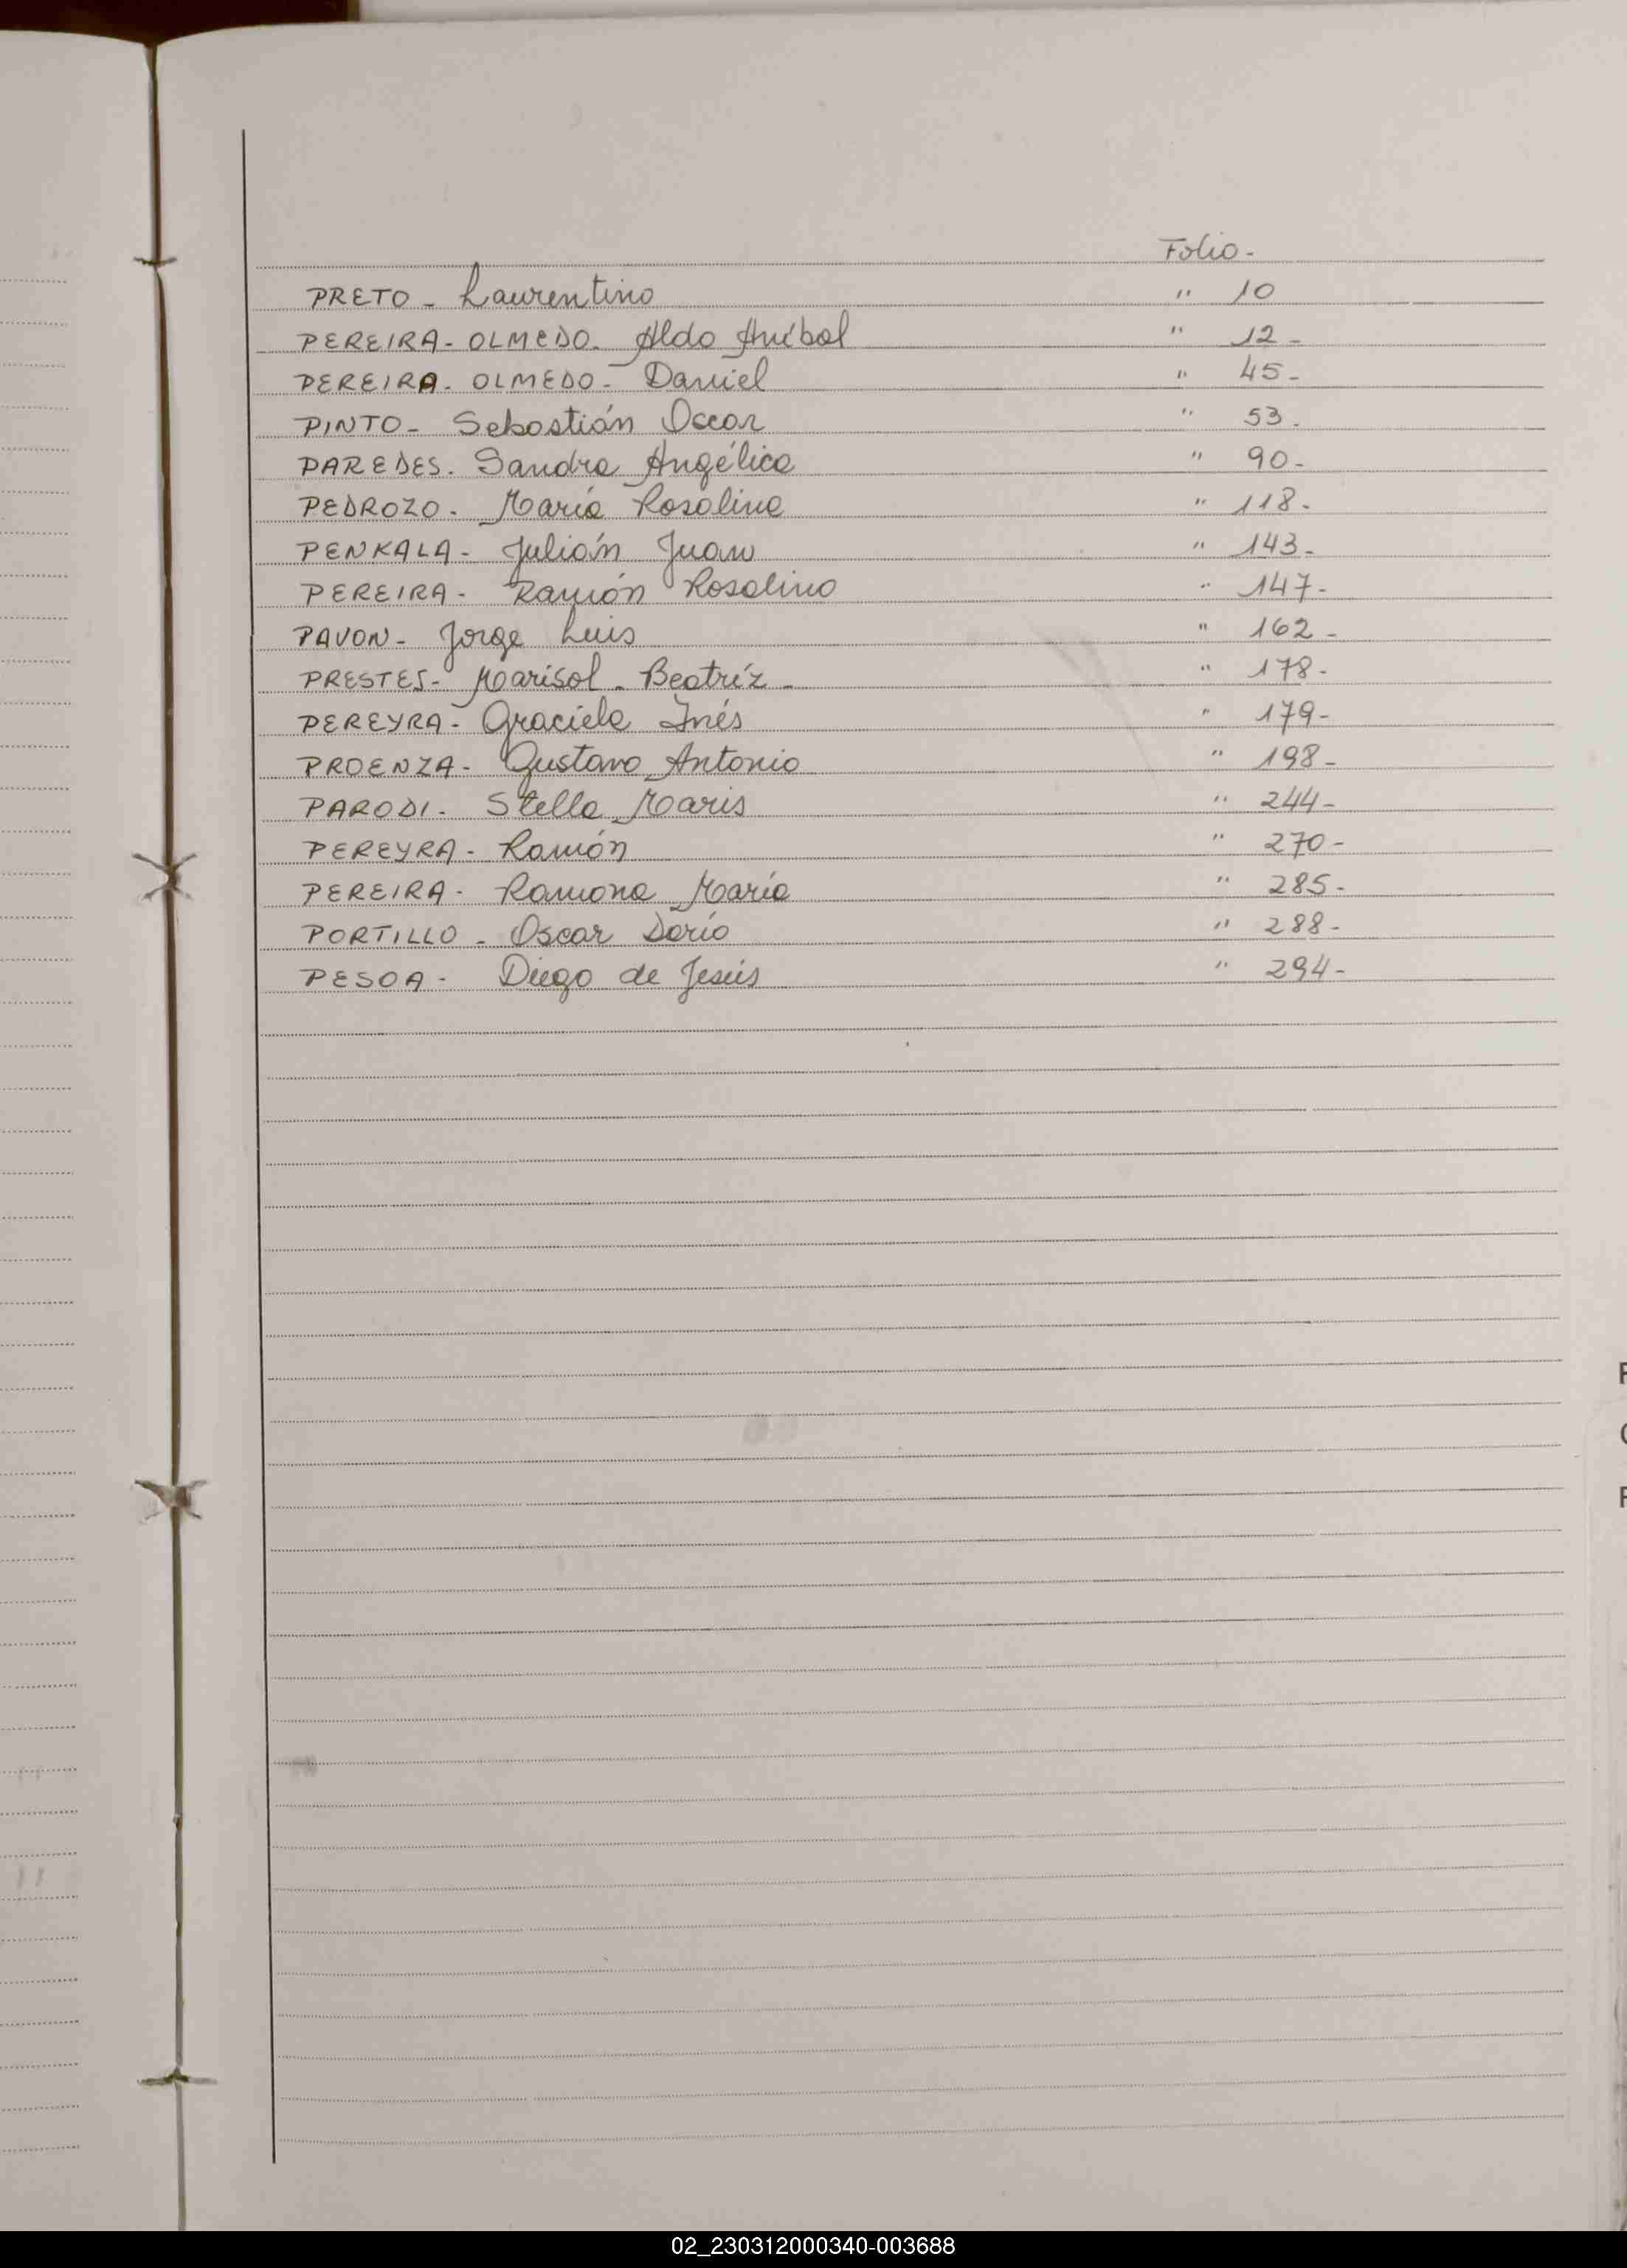 Folio-
PRETO - Laurentino " 10
PEREIRA - OLMEDO - Aldo Aníbal " 12 -
PEREIRA - OLMEDO - Daniel " 45 -
PINTO - Sebastián Oscar " 53 -
PAREDES - Sandra Angélica " 90 -
PEDROZO - María Rosalina " 118 -
PENKALA - Julián Juan " 143 -
PEREIRA - Ramón Rosalino " 147 -
PAVON - Jorge Luis " 162 -
PRESTES - Marisol - Beatríz - " 178 -
PEREYRA - Graciela Inés " 179 -
PROENZA - Gustavo Antonio " 198 -
PARODI - Stella Maris " 244 -
PEREYRA - Ramón " 270 -
PEREIRA - Ramona María " 285 -
PORTILLO - Oscar Darío " 288 -
PESOA - Diego de Jesús " 294 -
02_230312000340-003688